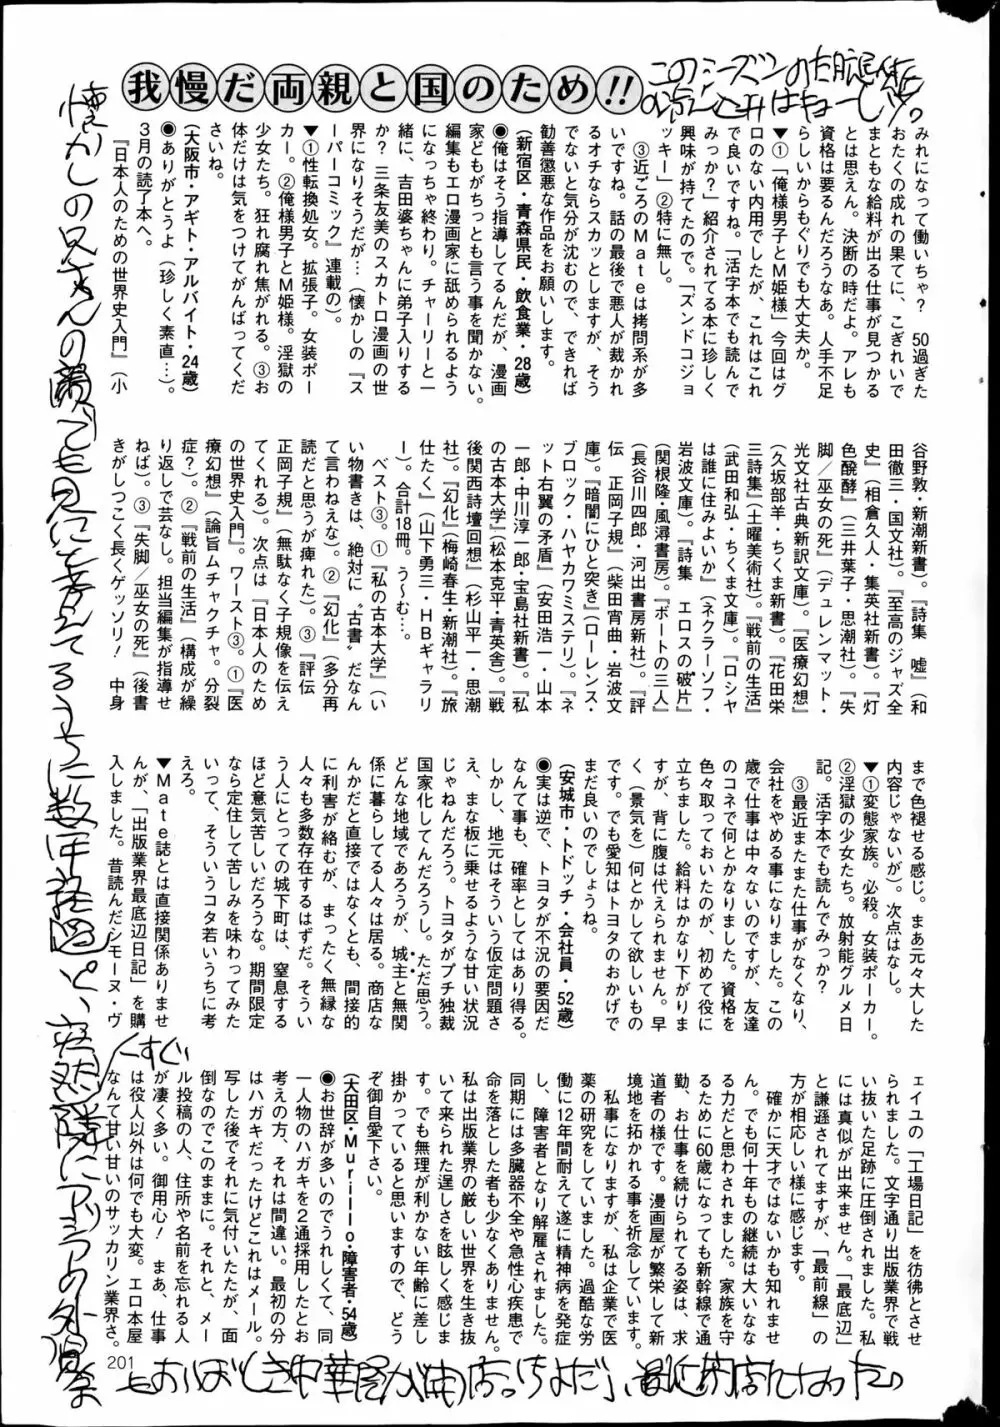 我慢だ両親と国のため!!
みれになって働いちゃ? 50過ぎた
おたくの成れの果てに、こぎれいで
まともな給料が出る仕事が見つかる
とは思えん。決断の時だよ。アレも
資格は要るんだろうなあ。人手不足
らしいからもぐりでも大丈夫か。
▼①「俺様男子とM姫様」今回はグ
ロのない内用でしたが、これはこれ
で良いですね。「活字本でも読んで
みっか?」紹介されてる本に珍しく
興味が持てたので。「ズンドコジョ
ッキー」②特に無し。
③近ごろのMateは拷問系が多
いですね。話の最後で悪人が裁かれ
るオチならスカッとしますが、そう
でないと気分が沈むので、できれば
勧善懲悪な作品をお願いします。
(新宿区・青森県民・飲食業・28歳)
●俺はそう指導してるんだが、漫画
家どもがちっとも言う事を聞かない。
編集もエロ漫画家に舐められるよう
になっちゃ終わり。チャーリーと一
緒に、吉田婆ちゃんに弟子入りする
か? 三条友美のスカトロ漫画の世
界になりそうだが…(懐かしの『ス
ーパーコミック』連載の)。
▼①性転換処女。拡張子。女装ポー
カー。②俺様男子とM姫様。淫獄の
少女たち。狂れ腐れ焦がれる。③お
体だけは気をつけてがんばってくだ
さいね。
(大阪市・アギト・アルバイト・24歳)
●ありがとうよ(珍しく素直…)。
3月の読了本へ。
『日本人のための世界史入門』(小
谷野敦・新潮新書)。『詩集 嘘』(和
田徹三・国文社)。『至高のジャズ全
史』(相倉久人・集英社新書)。『灯
色醗酵』(三井葉子・思潮社)。『失
脚/巫女の死』(デュレンマット・
光文社古典新訳文庫)。『医療幻想』
(久坂部羊・ちくま新書)。『花田栄
三詩集』(土曜美術社)。『戦前の生活』
(武田和弘・ちくま文庫)。『ロシヤ
は誰に住みよいか』(ネクラーソフ・
岩波文庫)。『詩集 エロスの破片』
(関根隆・風濤書房)。『ボートの三人』
(長谷川四郎・河出書房新社)。『評
伝 正岡子規』(柴田宵曲・岩波文
庫)。『暗闇にひと突き』(ローレンス・
ブロック・ハヤカワミステリ)。『ネ
ット右翼の矛盾』(安田浩一・山本
一郎・中川淳一郎・宝島社新書)。『私
の古本大学』(松本克平・青英舎)。『戦
後関西詩壇回想』(杉山平一・思潮
社)。『幻化』(梅崎春生・新潮社)。『旅
仕たく』(山下勇三・HBギャラリ
ー)。合計18冊。う～む…。
ベスト③。①『私の古本大学』(い
い物書きは、絶対に〝古書〟だなん
て言わねえな)。②『幻化』(多分再
読だと思うが痺れた)。③『評伝
正岡子規』(無駄なく子規像を伝え
てくれる)。次点は『日本人のため
の世界史入門』。ワースト③。①『医
療幻想』(論旨ムチャクチャ。分裂
症?)。②『戦前の生活』(構成が繰
り返しで芸なし。担当編集が指導せ
ねば)。③『失脚/巫女の死』(後書
きがしつこく長くゲッソリ! 中身
まで色褪せる感じ。まあ元々大した
内容じゃないが)。次点はなし。
▼①変態家族。必殺。女装ポーカー。
②淫獄の少女たち。放射能グルメ日
記。活字本でも読んでみっか?
③最近またまた仕事がなくなり、
会社をやめる事になりました。この
歳で仕事は中々ないのですが、友達
のコネで何とかなりました。資格を
色々取っておいたのが、初めて役に
立ちました。給料はかなり下がりま
すが、背に腹は代えられません。早
く(景気を)何とかして欲しいもの
です。でも愛知はトヨタのおかげで
まだ良いのでしょうね。
(安城市・トドッチ・会社員・52歳)
●実は逆で、トヨタが不況の要因だ
なんて事も、確率としてはあり得る。
しかし、地元はそういう仮定問題さ
え、まな板に乗せるような甘い状況
じゃねんだろう。トヨタがプチ独裁
国家化してんだろうし。ただ思う。
どんな地域であろうが、城主と無関
係に暮らしてる人々は居る。商店な
んかだと直接ではなくとも、間接的
に利害が絡むが、まったく無縁な
人々も多数存在するはずだ。そうい
う人にとっての城下町は、窒息する
ほど意気苦しいだろうな。期間限定
なら定住して苦しみを味わってみた
いって、そういうコタ若いうちに考
えろ。
▼Mate誌とは直接関係ありませ
んが、「出版業界最底辺日記」を購
入しました。昔読んだシモーヌ・ヴ
ェイユの「工場日記」を彷彿とさせ
られました。文字通り出版業界で戦
い抜いた足跡に圧倒されました。私
には真似が出来ません。「最底辺」
と謙遜されてますが、「最前線」の
方が相応しい様に感じます。
確かに天才ではないかも知れませ
ん。でも何十年もの継続は大いなな
る力だと思わされました。家族を守
るために60歳になっても新幹線で通
勤、お仕事を続けられてる姿は、求
道者の様です。漫画屋が繁栄して新
境地を拓かれる事を祈念しています。
私事になりますが、私は企業で医
薬の研究をしていました。過酷な労
働に12年間耐えて遂に精神病を発症
し、障害者となり解雇されました。
同期には多臓器不全や急性心疾患で
命を落とした者も少なくありません。
私は出版業界の厳しい世界を生き抜
いて来られた逞しさを眩しく感じま
す。でも無理が利かない年齢に差し
掛かっていると思いますので、どう
ぞ御自愛下さい。
(大田区・Murillo・障害者・54歳)
●お世辞が多いのでうれしくて、同
一人物のハガキを2通採用したんか
考えの方、それは間違い。最初の分
はハガキだったけどこれはメール。
写した後でそれに気付いたたが、面
倒なのでこのままに。それと、メー
ル投稿の人、住所や名前を忘れる人
が凄く多い。御用心! まあ、仕事
は役人以外は何でも大変。エロ本屋
なんて甘い甘いのサッカリン業界さ。
201